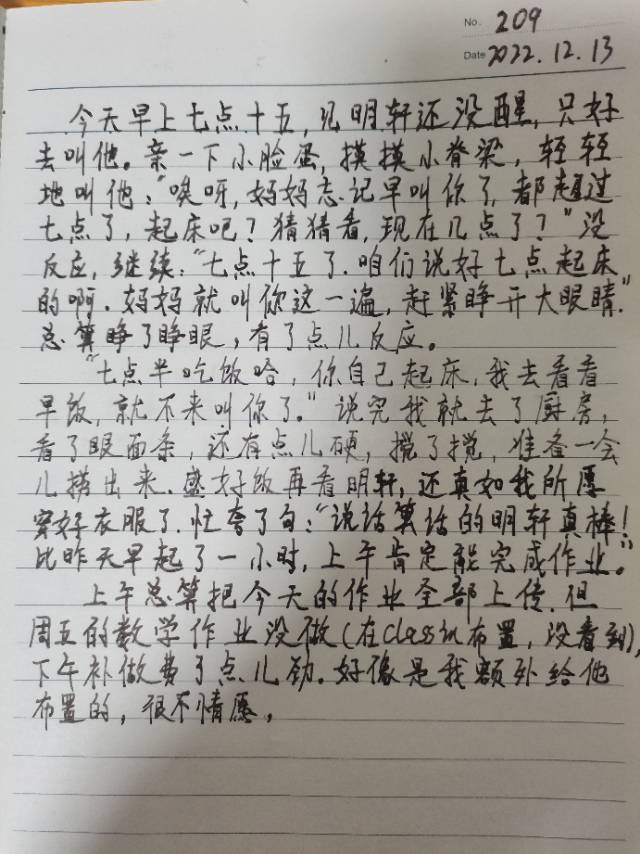 No. 209
Date 2022.12.13
今天早上七点十五,见明轩还没醒,只好
去叫他。亲一下小脸蛋,摸摸小脊梁,轻轻
地叫他:“唉呀,妈妈忘记早叫你了,都超过
七点了,起床吧?猜猜看,现在几点了?”没
反应,继续:“七点十五了.咱们说好七点起床
的啊.妈妈就叫你这一遍,赶紧睁开大眼睛.”
总算睁了睁眼,有了点儿反应。
“七点半吃饭哈,你自己起床,我去看看
早饭,就不来叫你了.”说完我就去了厨房,
看了眼面条,还有点儿硬,搅了搅,准备一会
儿捞出来.盛好饭再看明轩,还真如我所愿
穿好衣服了.忙夸了句:“说话算话的明轩真棒!
比昨天早起了一小时,上午肯定能完成作业。”
上午总算把今天的作业全部上传.但
周五的数学作业没做(在classin布置,没看到),
下午补做费了点儿劲.好像是我额外给他
布置的,很不情愿,